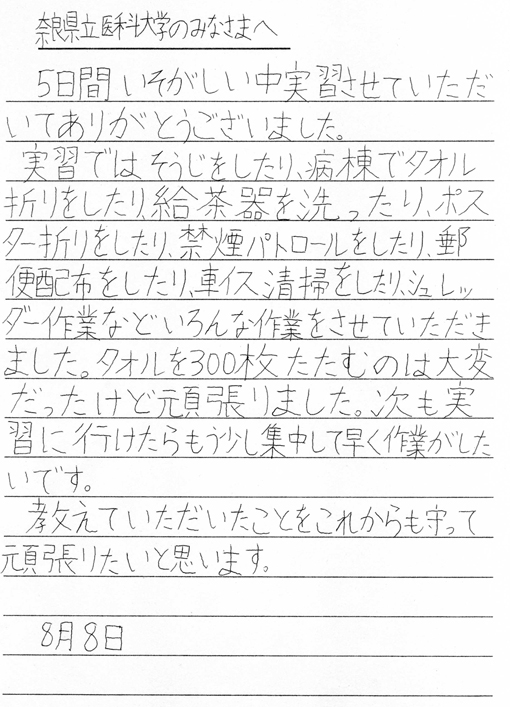 奈良県立医科大学のみなさまへ
5日間いそがしい中実習させていただ
いてありがとうございました。
実習ではそうじをしたり、病棟でタオル
折りをしたり、給茶器を洗ったり、ポス
ター折りをしたり、禁煙パトロールをしたり、郵
便配布をしたり、車イス清掃をしたり、シュレッ
ダー作業などいろんな作業をさせていただき
ました。タオルを300枚たたむのは大変
だったけど頑張りました。次も実
習に行けたらもう少し集中して早く作業がした
いです。
教えていただいたことをこれからも守って
頑張りたいと思います。
8月8日